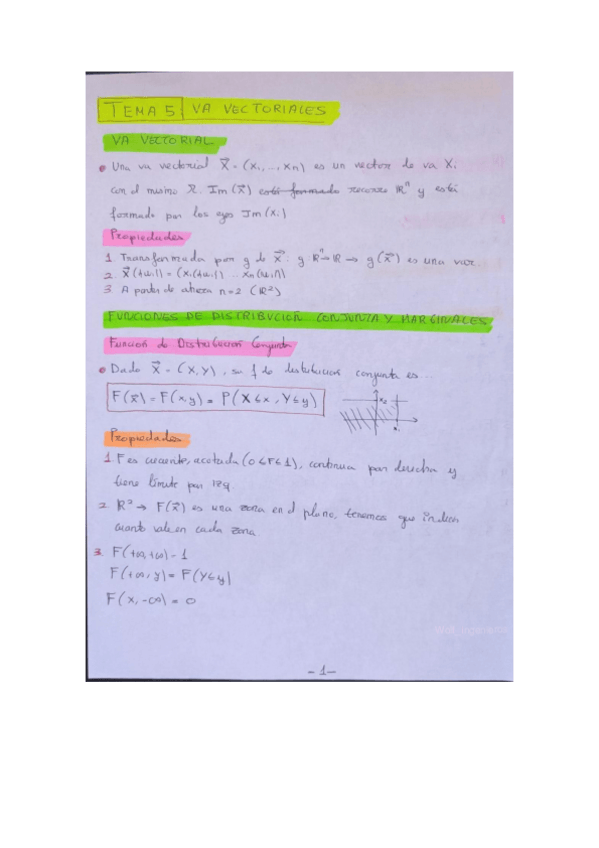 TEMA 5 VA VECTORIALES
VA VECTORIAL
• Una va vectorial X⃗ = (X₁, ..., Xn) es un vector de va Xi
con el mismo Ω. Im(X⃗) está formado recorre ℝⁿ y está
formado por los ejes Im(Xi)
Propiedades
1 Transformada por g de X⃗: g ℝⁿ→ℝ → g(X⃗) es una var.
3 A partir de ahora n=2 (ℝ²)
FUNCIONES DE DISTRIBUCIÓN CONJUNTA Y MARGINALES
Función de Distribución Conjunta
• Dado X⃗ = (X,Y), su f de distribución conjunta es...
F(x⃗) = F(x,y) = P(X≤x, Y≤y)
Propiedades
1 F es creciente, acotada (0≤F≤1), continua por derecha y
tiene límite por izq.
2. ℝ² → F(x⃗) es una zona en el plano, tenemos que indicar
cuanto vale en cada zona
3. F(+∞,+∞) = 1
F(+∞, y) = F(Y≤y)
F(x, -∞) = 0
- 1 -